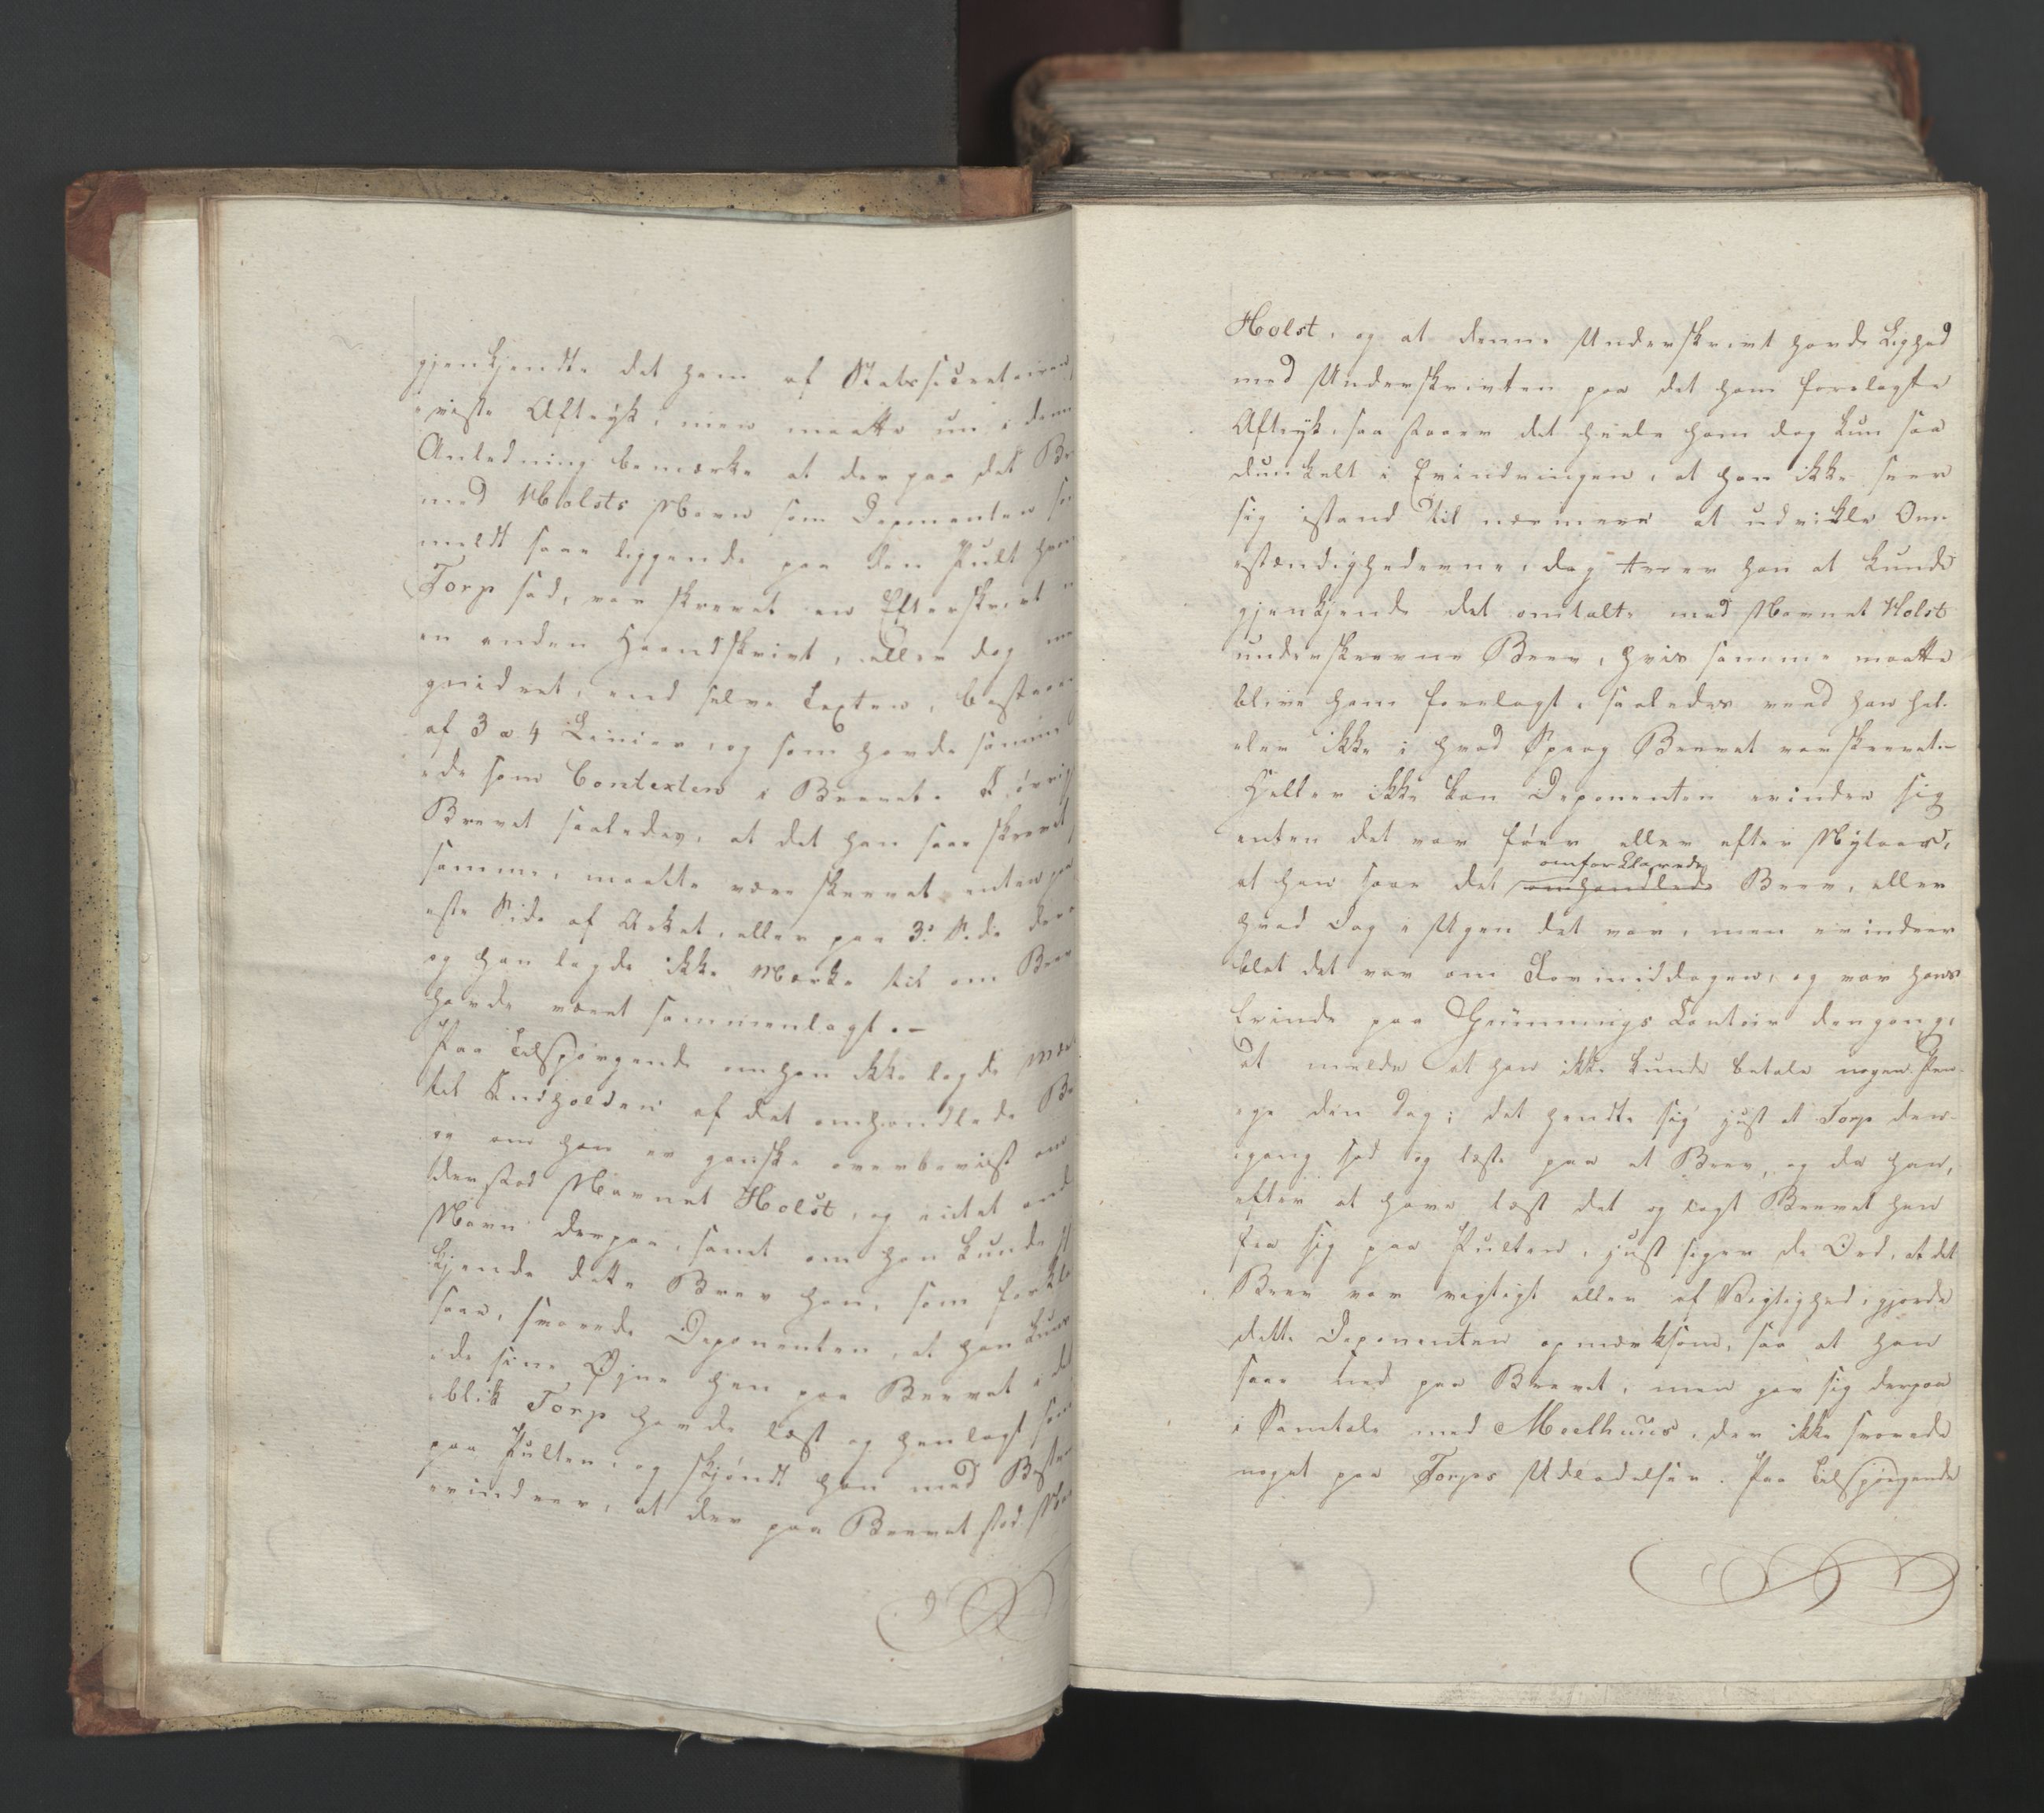 gjenkjendte det ham af Statssecretairen
viste Aftryk, men maatte un i denn
Anledning bemærke at der paa det Br
med Holsts Navn som Deponenten so
meldt saae liggende paa den Pult hvor
Torp sad, var skrevet en Efterskrivt
en anden Haandskrivt, eller dog
gnidret, end selve Texten, bestaae
af 3 a 4 Linier, og som havde samme
ede som Contexten i Brevet. I øvrig
Brevet saaledes, at det han saae skrevet
samme, maatte være skrevet enten paa
ste Side af Arket, eller paa 3e Side der
og han lagde ikke Mærke til om Brev
havde været sammenlagt.-
Paa Tilspørgende om han ikke lagde Mær
til Indholden af det omhandlede Br
om han er ganske overbeviist om
derstod Navnet Holst, og intet and
Navn derpaa, samt om han kunde
kjende dette Brev han, som forkla
saae, svarede Deponenten, at han kuns
de sine Øjne hen paa Brevet i d
blik Torp havde læst og henlagt sam
paa Pulten, og skjøndt han med Bestem
erindrer, at der paa Brevet stod Na
Holst, og at denne Underskrivt havde Lighed
med Underskrivten paa det ham forelagte
Aftryk, saa staaer det hele ham dog kun saa
dunkelt i Erindringen, at han ikke seer
sig istand til nærmere at udvikle Om-
stændighederne, dog troer han at kunde
gjenkjende det omtalte med Navnet Holst
underskrevne Brev, hvis samme maatte
blive ham forelagt, saaledes veed han hel-
eler ikke i hvad Sprog Brevet var skrevet.-
Heller ikke kan Deponenten erindre sig
enten det var føer eller efter Nytaar,
omforklarede
at han saae det omhandlede Brev, eller
hvad Dag i Ugen det var, men erindrer
blot det var om Formiddagen, og var hans
Erinde paa Günnings Contoir dengang,
at melde at han ikke kunde betale nogen Pen-
ge den Dag; det hendte sig just at Torp den-
gang sad og læste paa et Brev, og da han,
efter at have læst det og lagt Brevet hen
fra sig paa Pulten, just siger de Ord, at det
Brev var vigtigt eller af Vigtighed, gjorde
dette Deponenten opmærksom, saa at han
saae ned paa Brevet, men gav sig derpaa
i Samtale med Meelhuus, der ikke svarede
noget paa Torps Udladelser. Paa Tilspørgende